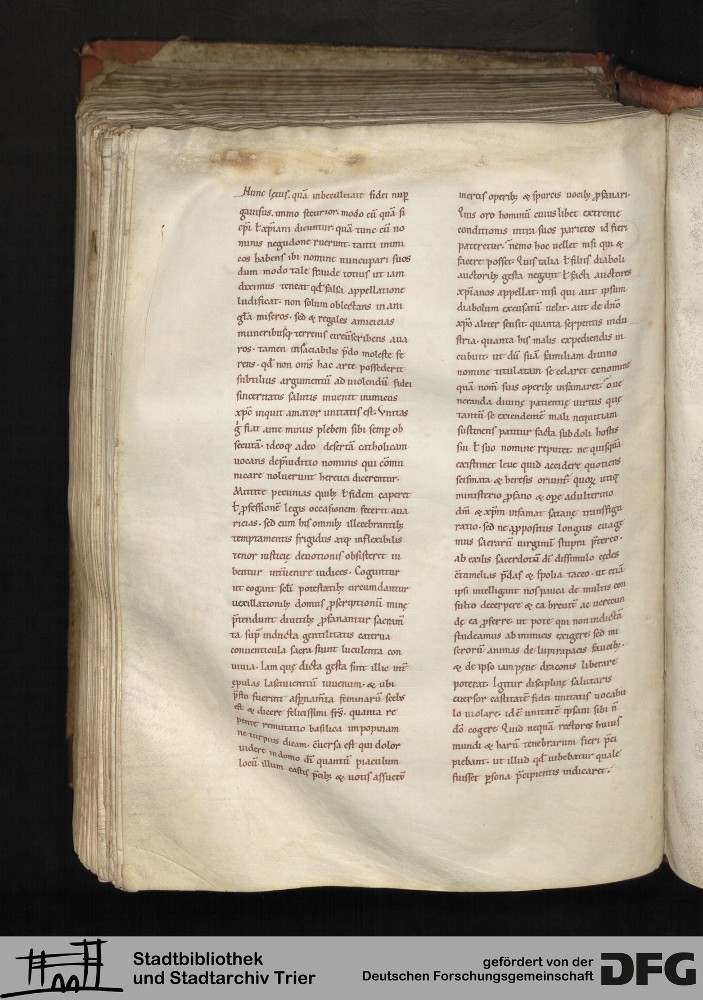 Hunc letus. quā inbecillitati fidei nup
gauisus. immo securior. modo cū quā si
ep̄i ł xp̄iani dicuntur. quā tunc cū no
minis negatione ruerunt. tanti inimi
cos habens ibi nomine nuncupari suos
dum modo tale fraude totius ut iam
diximus teneat qđ falsa appellatione
ludificat. non solum oblectans inani
gł̄a miseros. sed & regales amicicias
muneribusq; terrenis circūscribens aua
ros. tamen insaciabilis p̄do moleste fe
rens. qđ non om̄s hac arte possederit
subtilius argumentū ad uiolendū fidei
sinceritatis salutis inuenit inimicus
xp̄c inquit amator unitatis est. Vnitas
g̊ fiat ante minus plebem sibi semp ob
secutā. ideoq; a deo desertā catholicam
uocans
nicare noluerunt heretici dicerentur.
Mittit pecunias quib; ł fidem caperet
ł ꝓfessionē legis occasionem fecerit aua
ricias. sed cum his omnib; illecebrantib;
temptamentis frigidus atq; inflexibilis
tenor iusticie deuotionis obsisteret iu
bentur int̄uenire iudices. Coguntur
ut cogant sc̄li potestatib; circumdantur
uexillationib; domus ꝓscriptionū mine
p̄tendunt diuitib; ꝓfanantur sacram̄
ta sup̄ inducta gentilitatis caterua
conuenticula sacra fiunt luculenta con
uiuia. Iam que dicta gesta sunt illic int̄
epulas lasciuientiū iuuenum. & ubi
p̄sto fuerunt aspnam̄ta feminarū
est & dicere felicissimi fr̄s. quanta re
pente remutatio basilica in popinam
ne turpius dicam. cūersa est qui dolor
uidere in domo dī quantū piaculum
locū illum castis p̄cib; & uotis assuetū
inertis operib; & spurcis uocib; ꝓfanari.
Quis oro hominū cuius libet extreme
conditionis intra suos parietes id fieri
pateretur. nemo hoc uellet nisi qui &
facere posset. Quis talia ł filiis diaboli
auctorib; gesta negat ł facti auctores
xp̄ianos appellat. nisi qui aut ipsum
diabolum excusatū uelit. aut de dn̄o
xp̄o aliter sensit. quanta serpentis indu
stria. quanta his malis expediendis in
cubuit. ut dū suā familiam diuino
nomine titulatam se celaret ex nomine
quā nom̄ suis operib; infamaret. O ue
neranda diuine patientie uirtus que
tantū se extendentē mali nequitiam
sustinens patitur facta subdoli hostis
sui ł suo nomine reputet. ne quisquā
existimet leue quid accidere quotiens
scismata & heresis oriunt̄ quorꝫ utiq;
ministerio ꝓfano & ope adulterino
dm̄ & xp̄m infamat satane transfigu
ratio. sed ne appositus longius euage
mus sacrarū uirginū stupra p̄tereo.
ab exilis sacerdotū dī dissimulo cedes
c̄tumelias p̄das & spolia taceo. ut etiā
ipsi intelligant nos pauca de multis con
sulto decerpere & ea breuit̄ ac uerecun
de ea ꝓferre. ut pote qui non indictā
studeamus ab inimicis exigere. sed mi
serorū animas de lupi rapacis faucib;
& de ipso iam pene draconis liberare
poterat. Igitur discipline salutaris
euersor castitatē fidei unitatis uocabu
lo uiolare. idē unitatē ipsam sibi n̄
dō cogere. Quid nequā rectores huius
mundi & harū tenebrarum fieri p̄ci
piebant. ut illud qđ uibebatur quale
fuisset psona p̄cipientis indicaret.
Stadtbibliothek
und Stadtarchiv Trier
gefördert von der
Deutschen Forschungsgemeinschaft
DFG